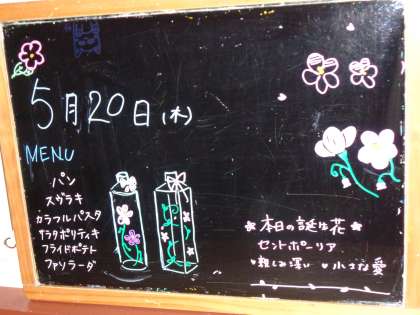 5月20日(木)
MENU
パン
スザラキ
カラフルパスタ
サラタポリティキ
フライドポテト
ファソラーダ
本日の誕生花
セントポーリア
親しみ深い 小さな愛